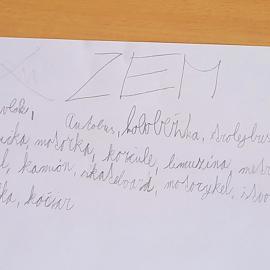 ZEM
vlak,
Autobus, koloběžka, trolejbus
motorka, korčule, limuzína, met
kamión, skateboard, motorzykel,
kočiar